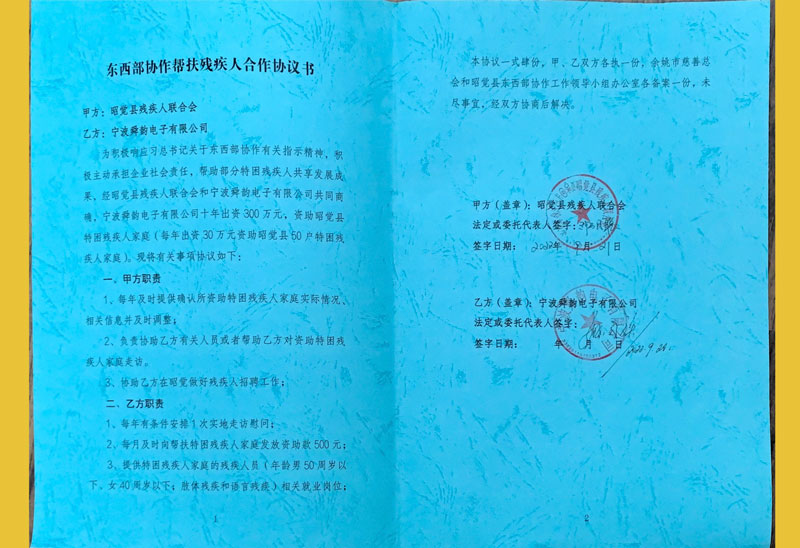 东西部协作帮扶残疾人合作协议书
甲方：昭觉县残疾人联合会
乙方：宁波舜韵电子有限公司
为积极响应习总书记关于东西部协作有关指示精神，积
极主动承担企业社会责任，帮助部分特困残疾人共享发展成
果，经昭觉县残疾人联合会和宁波舜韵电子有限公司共同商
确，宁波舜韵电子有限公司十年出资300万元，资助昭觉县
特困残疾人家庭（每年出资30万元资助昭觉县50户特困残
疾人家庭）。现将有关事项协议如下：
一、甲方职责
1、每年及时提供确认所资助特困残疾人家庭实际情况、
相关信息并及时调整；
2、负责协助乙方有关人员或者帮助乙方对资助特困残
疾人家庭走访。
3、协助乙方在昭觉做好残疾人招聘工作；
二、乙方职责
1、每年有条件安排1次实地走访慰问；
2、每月及时向帮扶特困残疾人家庭发放资助款500元；
3、提供特困残疾人家庭的残疾人员（年龄男50周岁以
下、女40周岁以下；肢体残疾和语言残疾）相关就业岗位；
1
本协议一式肆份，甲、乙双方各执一份，余姚市慈善总
会和昭觉县东西部协作工作领导小组办公室各备案一份，未
尽事宜，经双方协商后解决。
甲方（盖章）：昭觉县残疾人联合会
法定或委托代表人签字：
签字日期： 2022年 月 21日
乙方（盖章）：宁波舜韵电子有限公司
法定或委托代表人签字：
签字日期： 年 月 日
2022.9.21.
2